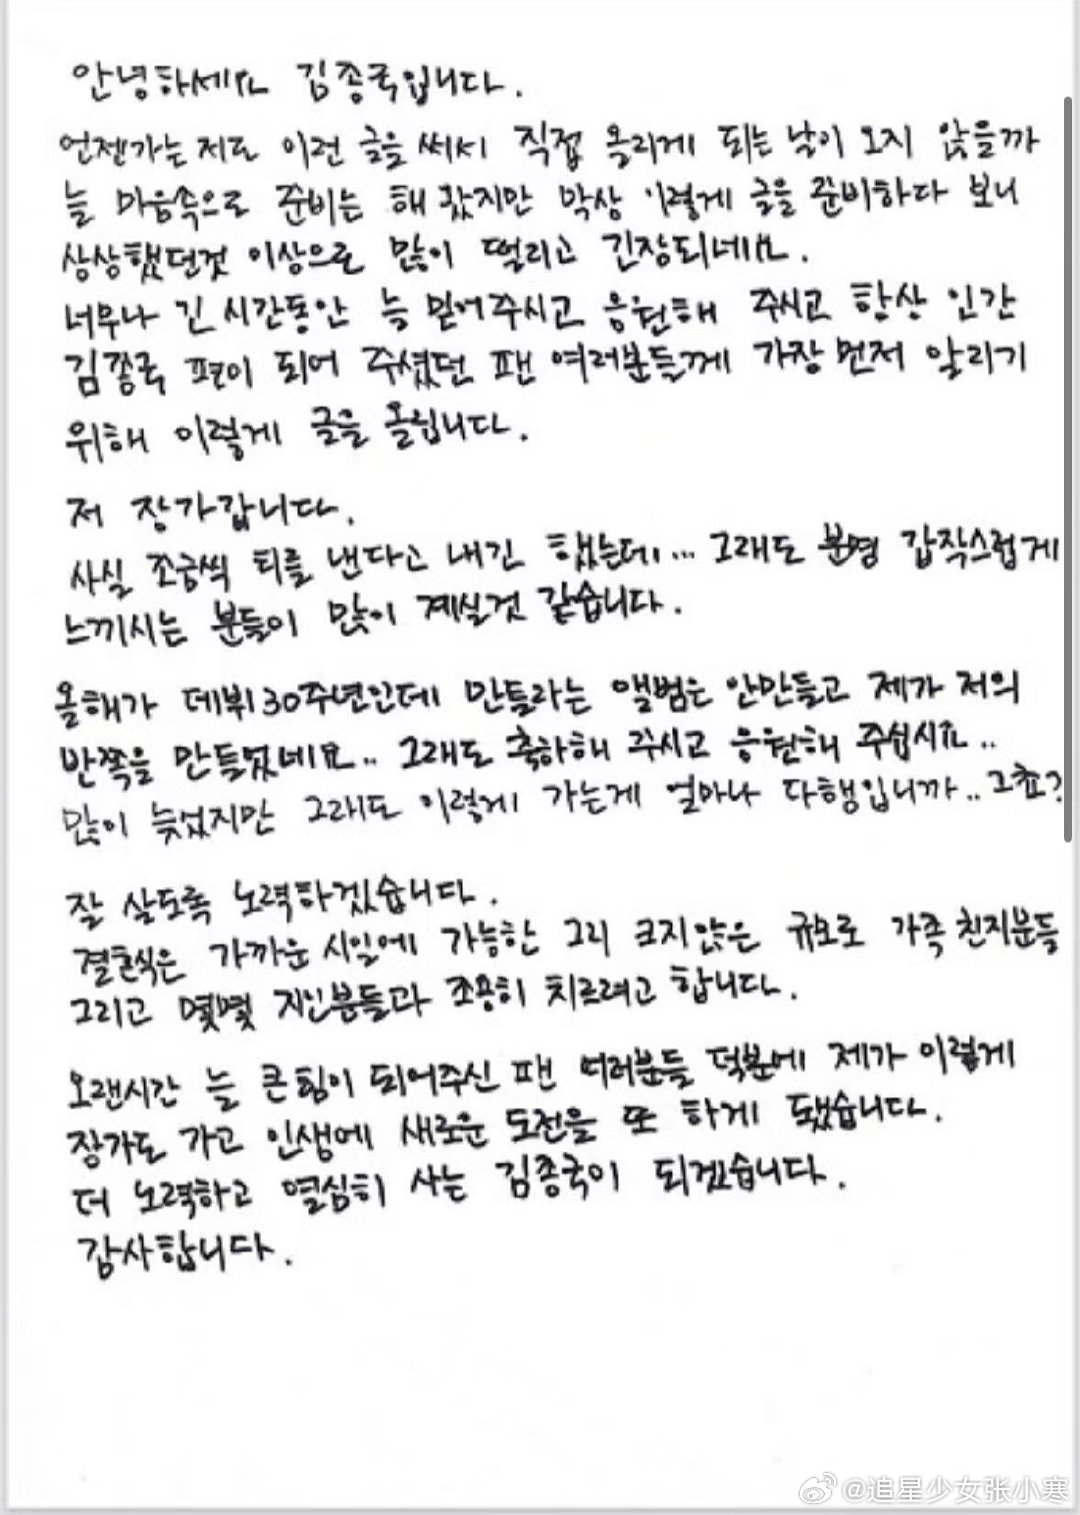 안녕하세요 김종국입니다.
언젠가는 저도 이런 글을 써서 직접 올리게 되는 날이 오지 않을까
늘 마음속으로 준비는 해 왔지만 막상 이렇게 글을 준비하다 보니
상상했던것 이상으로 많이 떨리고 긴장되네요.
너무나 긴 시간동안 늘 믿어주시고 응원해 주시고 항상 인간
김종국 편이 되어 주셨던 팬 여러분들께 가장 먼저 알리기
위해 이렇게 글을 올립니다.
저 장가갑니다.
사실 조금씩 티를 낸다고 내긴 했는데... 그래도 분명 갑작스럽게
느끼시는 분들이 많이 계실것 같습니다.
올해가 데뷔 30주년인데 만들라는 앨범은 안만들고 제가 저의
반쪽을 만들었네요.. 그래도 축하해 주시고 응원해 주십시요..
많이 늦었지만 그래도 이렇게 가는게 얼마나 다행입니까.. 그쵸?
잘 살도록 노력하겠습니다.
결혼식은 가까운 시일에 가능한 그리 크지않은 규모로 가족 친지분들
그리고 몇몇 지인분들과 조용히 치르려고 합니다.
오랜시간 늘 큰 힘이 되어주신 팬 여러분들 덕분에 제가 이렇게
장가도 가고 인생에 새로운 도전을 또 하게 됐습니다.
더 노력하고 열심히 사는 김종국이 되겠습니다.
감사합니다.
@追星少女张小寒